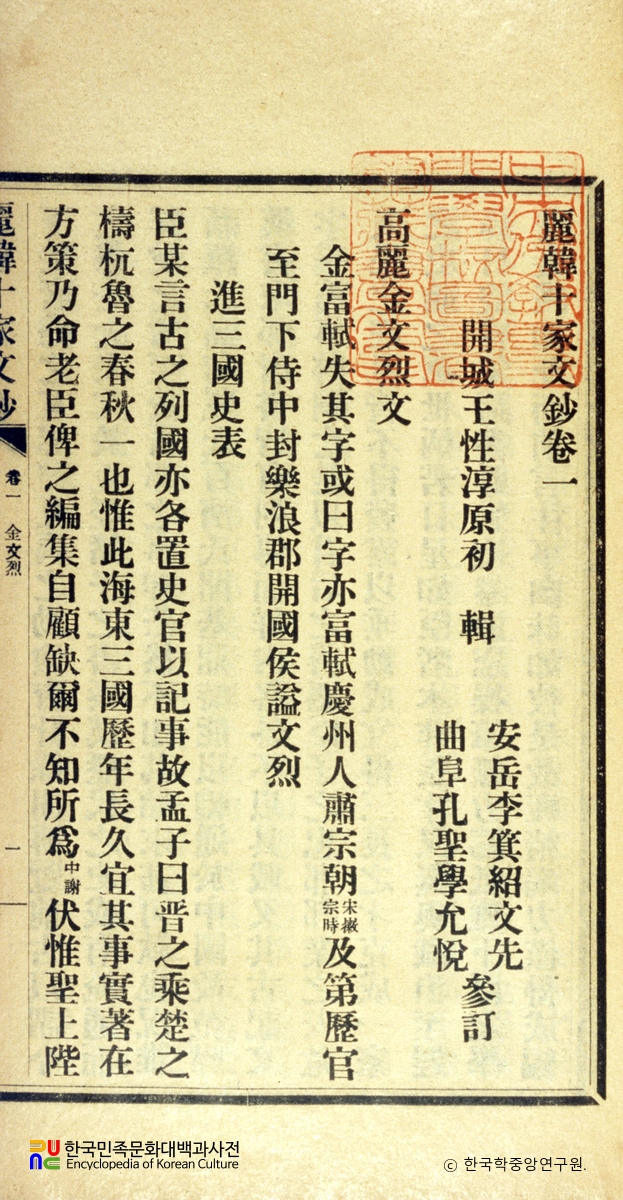 麗韓十家文鈔卷一
安岳李箕紹文先
開城王性淳原初　輯
曲阜孔聖學允悅
參訂
高麗金文烈文
金富軾失其字或曰字亦富軾慶州人肅宗朝宋徽宗時及第歷官
至門下侍中封樂浪郡開國侯謚文烈
進三國史表
臣某言古之列國亦各置史官以記事故孟子曰晋之乘楚之
檮杌魯之春秋一也惟此海東三國歷年長久宜其事實著在
方策乃命老臣俾之編集自顧缺爾不知所爲中謝伏惟聖上陛
麗韓十家文鈔
卷一　金文烈
一
한국민족문화대백과사전
Encyclopedia of Korean Culture
© 한국학중앙연구원.